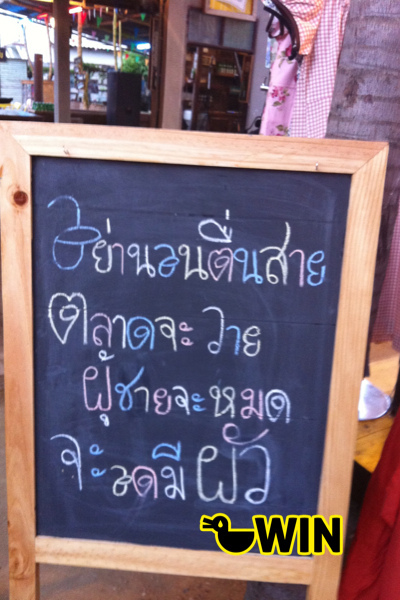 อย่านอนตื่นสาย
ตลาดจะวาย
ผู้ชายจะหมด
จะอดมีผัว
WIN